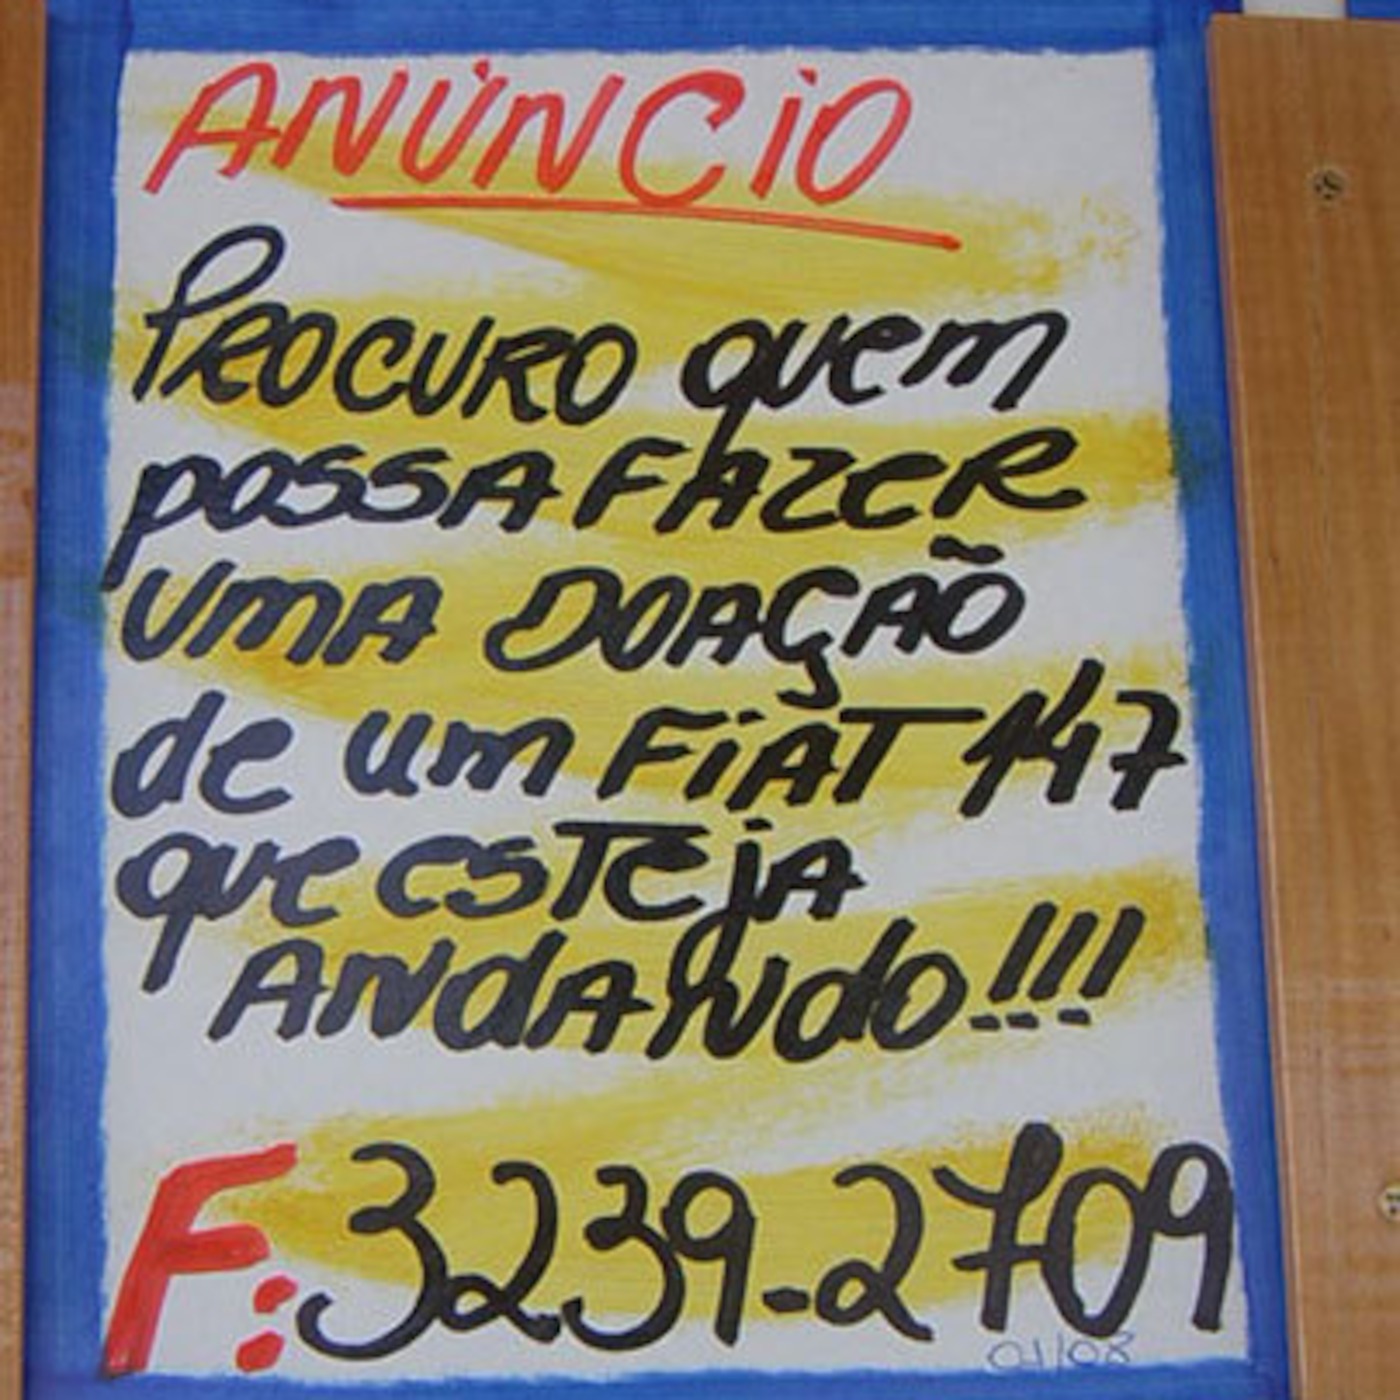 ANÚNCIO
PROCURO quem
possA FAZER
UMA DOAÇÃO
de um FiAT 147
que esTejA
ANdANdo!!!
F: 3239-2709
01/08